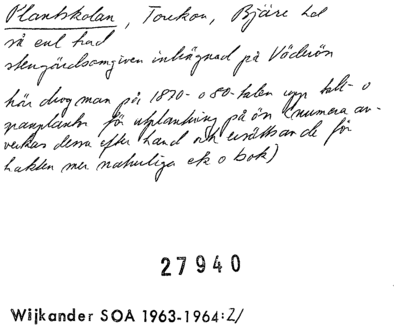 Plantskolan, Torekov, Bjäre hd
så enl had
stengärdsomgiven inhägnad på Väderön
här drog man på 1870- o 80-talen upp tall- o
granplantor för utplantering på ön (numera av-
verkas dessa efter hand och ersättas de för
trakten mer naturliga ek o bok)
27940
Wijkander SOA 1963-1964:2/